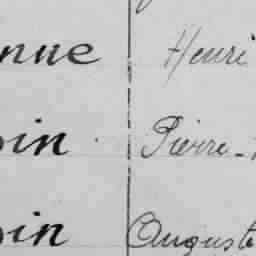 nne Henri
in Pierre-
in Auguste